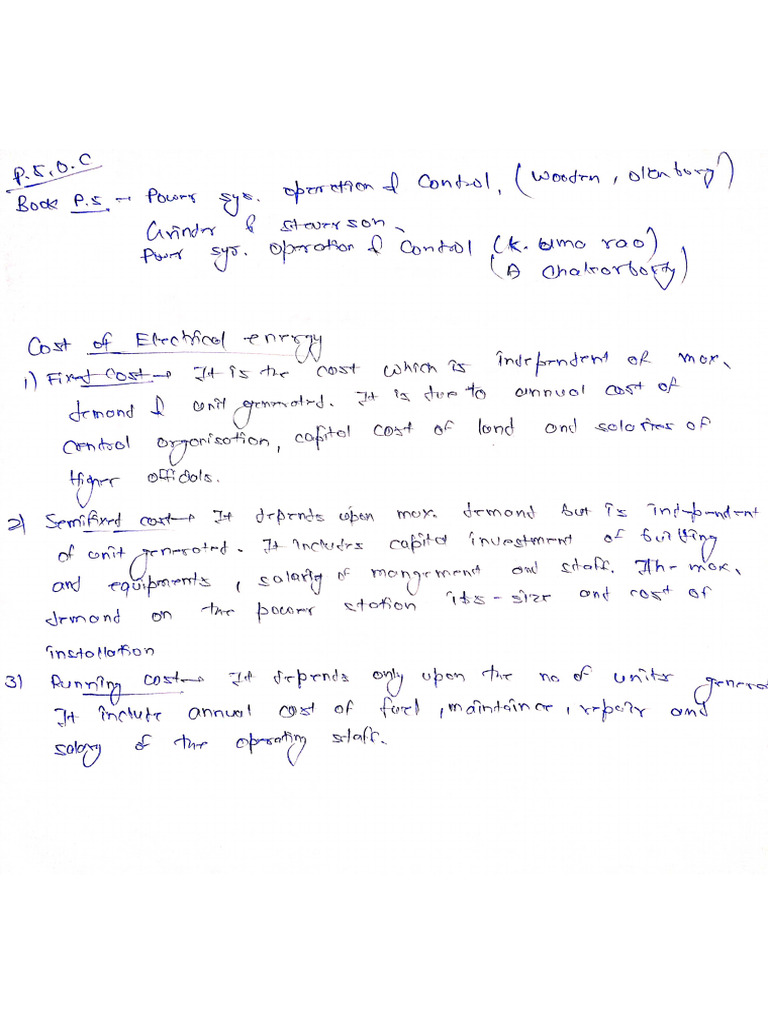 P.S.O.C
Book P.S. → Power sys. operation & Control, (Wooden, Olenburg)
Grinder & Steverson,
Power sys. operation & Control (K. Uma rao)
(A Chakrorborty)
Cost of Electrical energy
1) Fixed Cost → It is the cost which is independent of max.
demand & unit generated. It is due to annual cost of
control organisation, capital cost of land and salaries of
Higher officials.
2) Semifixed cost → It depends upon max. demand but is independent
of unit generated. It includes capital investment of building
and equipments, salary of mangement and staff. Th- max.
demand on the power station its - size and cost of
installation
3) Running cost → It depends only upon the no of units generat
It include annual cost of fuel, maintaince, repair and
salary of the operating staff.